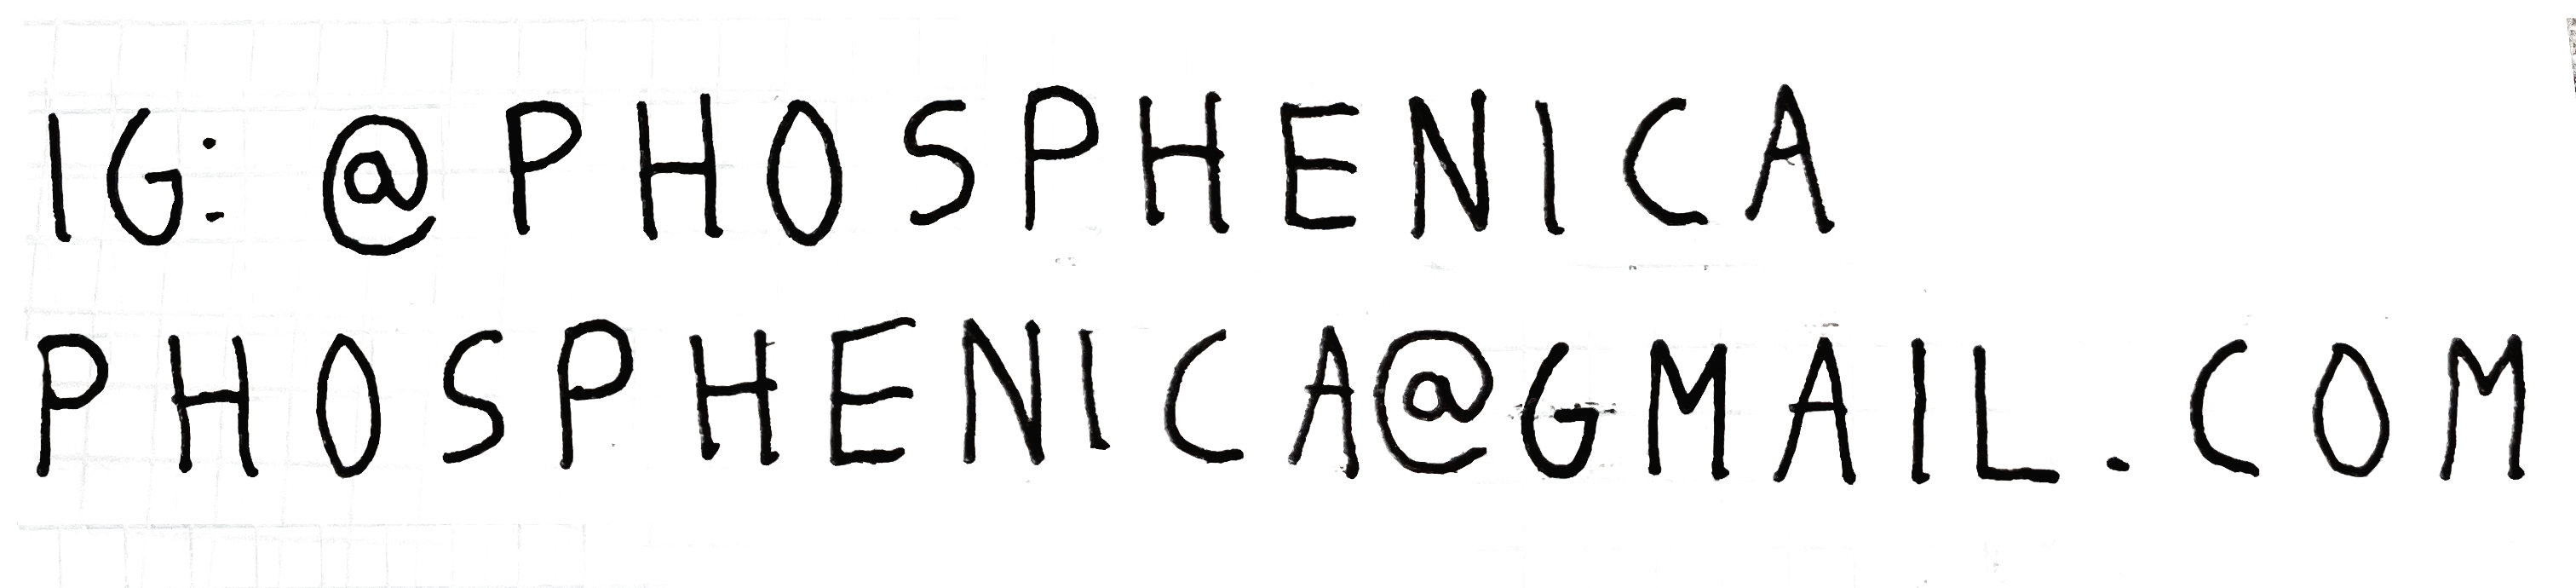 IG: @PHOSPHENICA
PHOSPHENICA@GMAIL.COM